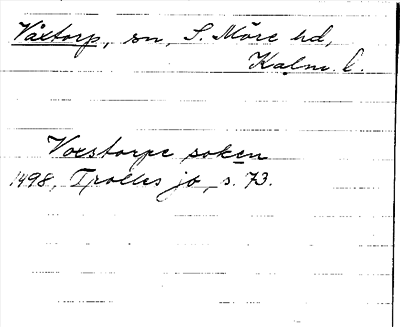 Växtorp, sn, S. Möre hd,
Kalm. l.
Voxstorpe soken
1498, Trolles jb, s. 73.